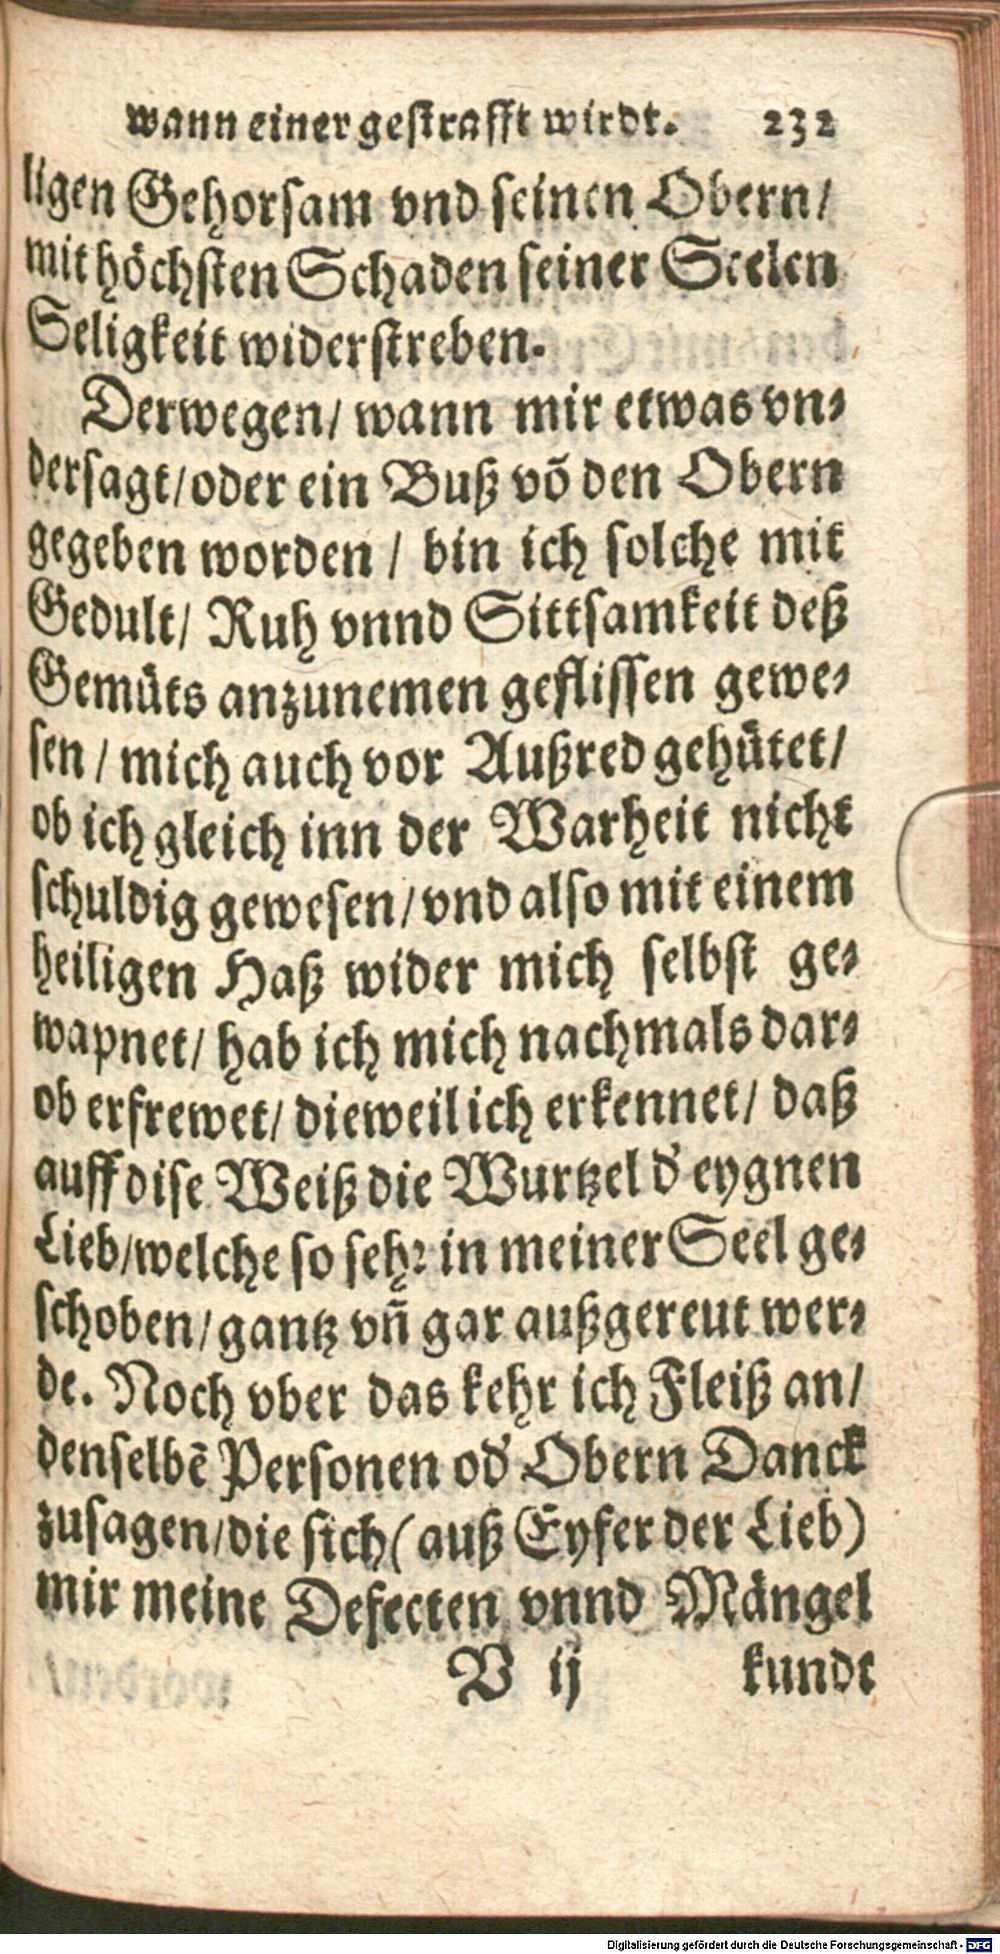 wann einer gestrafft wirdt. 232
ligen Gehorsam vnd seinen Obern/
mit höchsten Schaden seiner Seelen
Seligkeit widerstreben.
Derwegen/ wann mir etwas vn⸗
dersagt/oder ein Buß võ den Obern
gegeben worden / bin ich solche mit
Gedult/ Ruh vnnd Sittsamkeit deß
Gemüts anzunemen geflissen gewe⸗
sen / mich auch vor Außred gehütet/
ob ich gleich inn der Warheit nicht
schuldig gewesen/vnd also mit einem
heiligen Haß wider mich selbst ge⸗
wapnet/ hab ich mich nachmals dar⸗
ob erfrewet/ dieweil ich erkennet/ daß
auff dise Weiß die Wurtzel d' eygnen
Lieb/welche so sehr in meiner Seel ge⸗
schoben/gantz vñ gar außgereut wer⸗
de. Noch vber das kehr ich Fleiß an/
denselbẽ Personen od' Obern Danck
zusagen/die sich (auß Eyfer der Lieb)
mir meine Defecten vnnd Mängel
V ij kundt
Digitalisierung gefördert durch die Deutsche Forschungsgemeinschaft - DFG